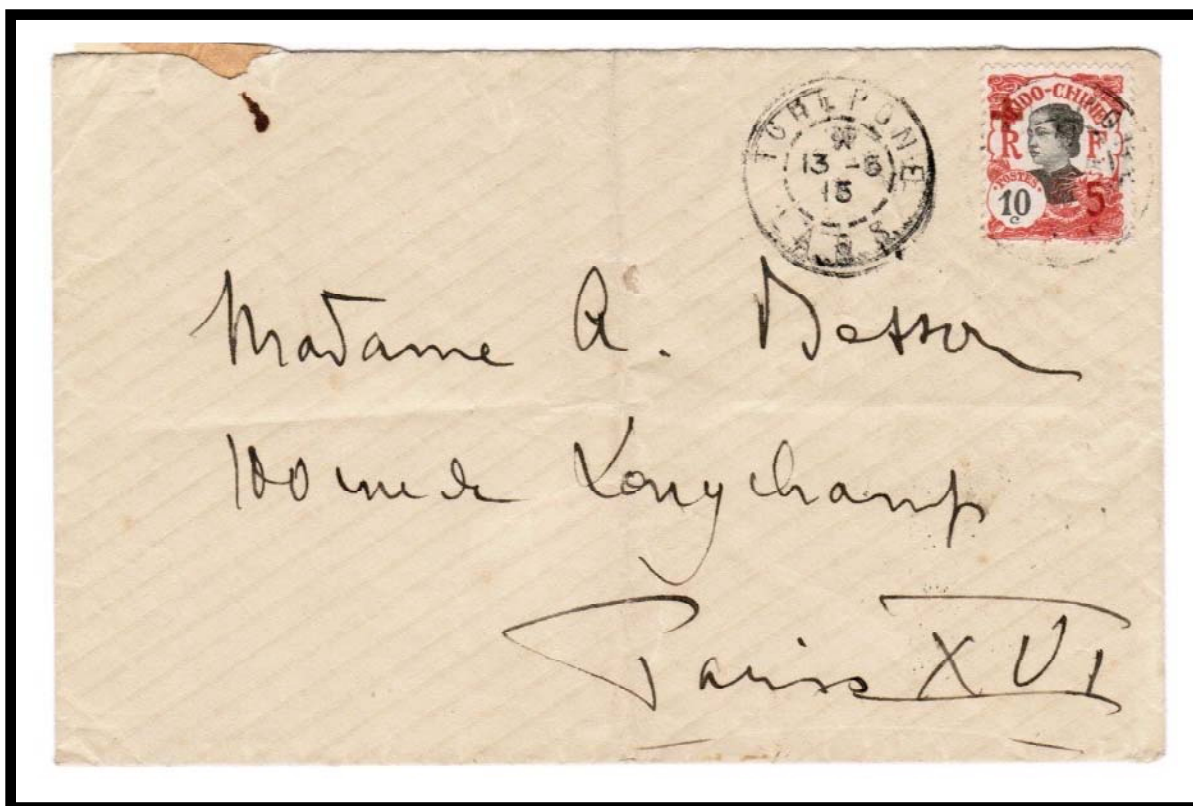 TCHEPONE
13 -6
15
LAOS
INDO-CHINE
R F
POSTES
10 c
5
Madame A. Besson
100 rue de Longchamp
Paris XVI